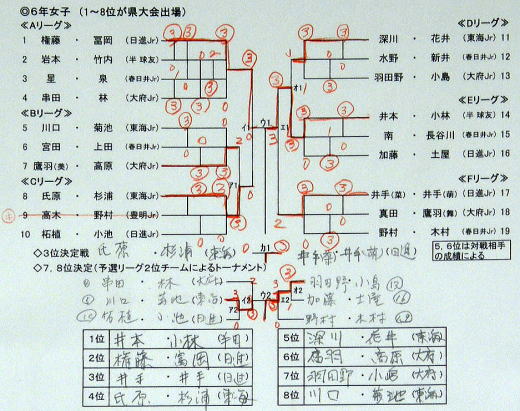 ◎6年女子 （1〜8位が県大会出場）
≪Aリーグ≫
1 権藤 ・ 冨岡 (日進Jr)
2 岩本 ・ 竹内 (半 球友)
3 星 ・ 泉 (春日井Jr)
4 串田 ・ 林 (大府Jr)
≪Bリーグ≫
5 川口 ・ 菊池 (東海Jr)
6 宮田 ・ 上田 (春日井Jr)
7 鷹羽(美) ・ 高原 (大府Jr)
≪Cリーグ≫
8 氏原 ・ 杉浦 (東海Jr)
9 高木 ・ 野村 (豊明Jr)
10 柘植 ・ 小池 (日進Jr)
≪Dリーグ≫
深川 ・ 花井 (東海Jr) 11
水野 ・ 新井 (春日井Jr) 12
羽田野 ・ 小島 (大府Jr) 13
≪Eリーグ≫
井本 ・ 小林 (半 球友) 14
南 ・ 長谷川 (春日井Jr) 15
加藤 ・ 土屋 (日進Jr) 16
≪Fリーグ≫
井手(菜) ・ 井手(萌) (日進Jr) 17
真田 ・ 鷹羽(舞) (大府Jr) 18
野村 ・ 木村 (春日井Jr) 19
5, 6位は対戦相手の成績による
◇3位決定戦 氏原 ・ 杉浦 (東海) カ1 井手(菜)・井手(萌) (日進)
◇7, 8位決定(予選リーグ2位チームによるトーナメント)
串田 ・ 林 (大府)
川口 ・ 菊池 (東海)
柘植 ・ 小池 (日進)
羽田野・小島 ⑬
加藤 ・ 土屋 ⑯
野村 ・ 木村 ⑲
1位 井本 ・ 小林 (半田)
2位 権藤 ・ 冨岡 (日進)
3位 井手 ・ 井手 (日進)
4位 氏原 ・ 杉浦 (東海)
5位 深川 ・ 花井 (東海)
6位 鷹羽 ・ 高原 (大府)
7位 羽田野・小嶋 (大府)
8位 川口 ・ 菊池 (東海)